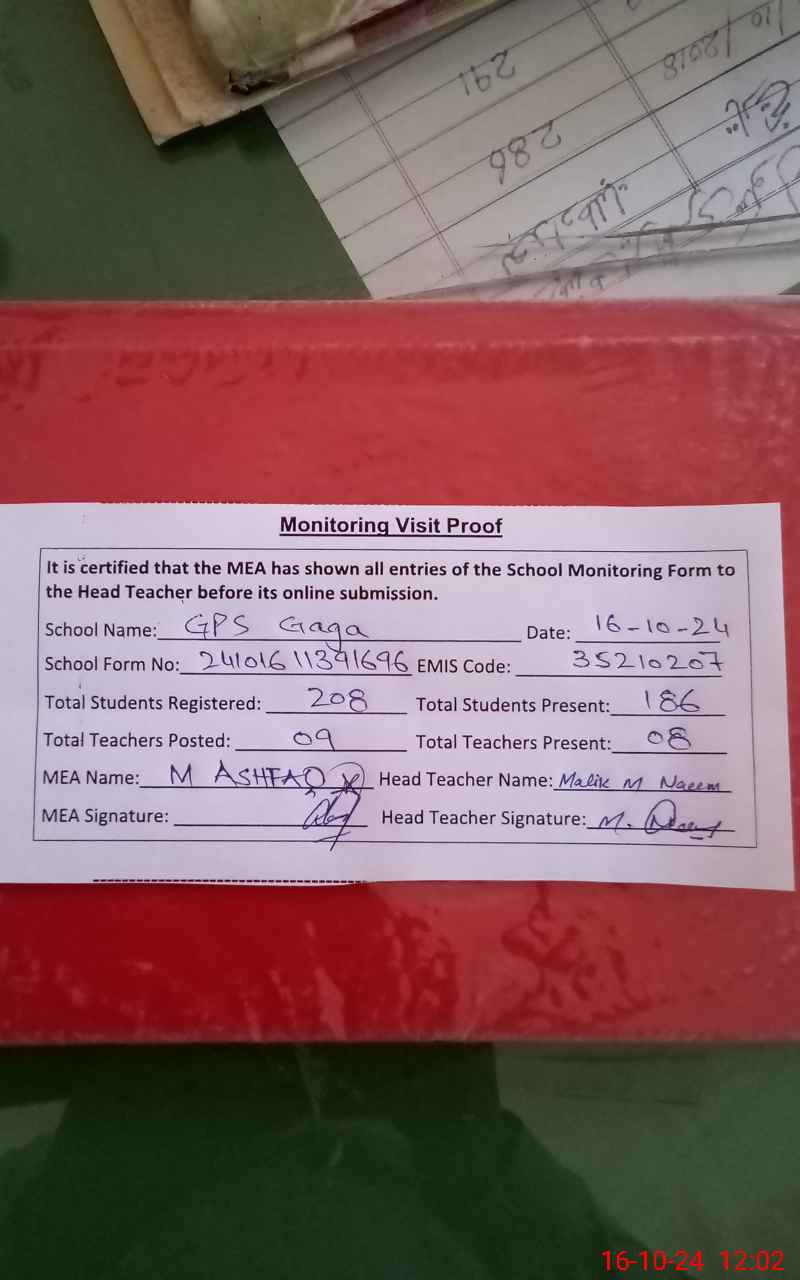 291
10/2018
286
Monitoring Visit Proof
It is certified that the MEA has shown all entries of the School Monitoring Form to
the Head Teacher before its online submission.
School Name: GPS Gaga Date: 16-10-24
School Form No: 24101611391696 EMIS Code: 35210207
Total Students Registered: 208 Total Students Present: 186
Total Teachers Posted: 09 Total Teachers Present: 08
MEA Name: M ASHFAQ Head Teacher Name: Malik M Naeem
MEA Signature: Head Teacher Signature: M. Naeem
16-10-24 12:02